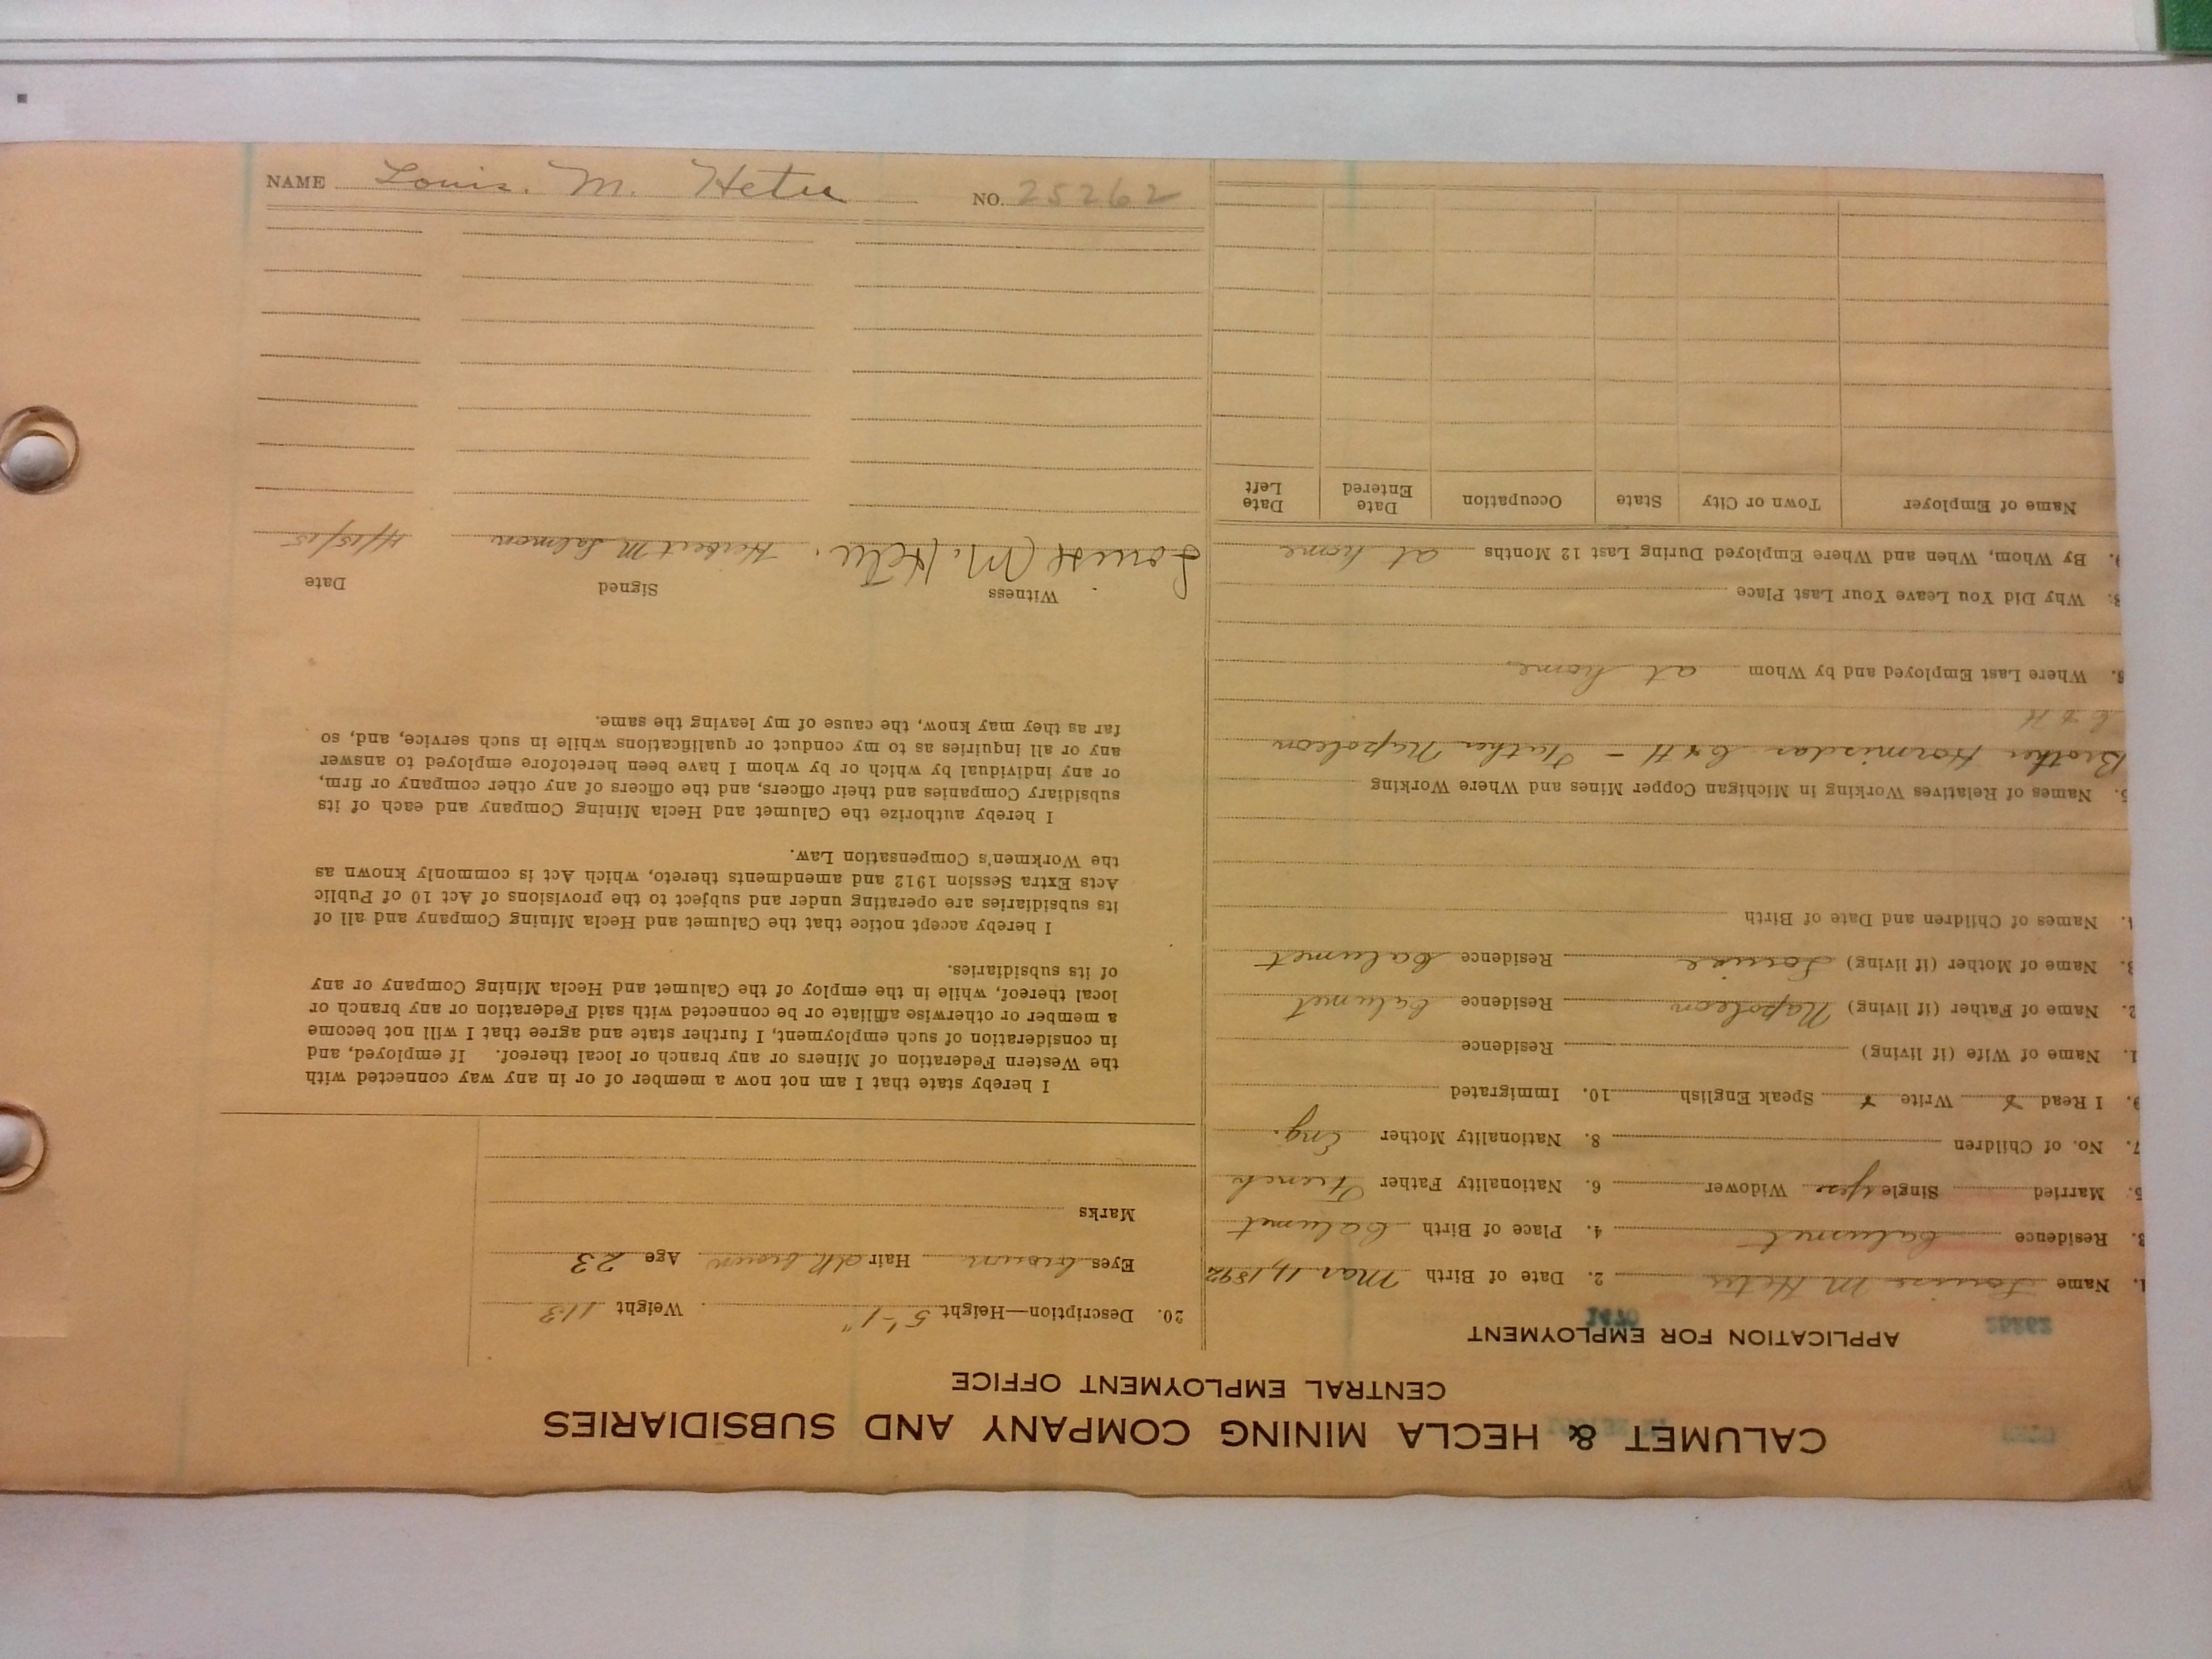 CALUMET & HECLA MINING COMPANY AND SUBSIDIARIES
CENTRAL EMPLOYMENT OFFICE
APPLICATION FOR EMPLOYMENT
25262
1470
1. Name Louise M Hetu 2. Date of Birth Mar 4, 1892
3. Residence Calumet 4. Place of Birth Calumet
5. Married Single yes Widower 6. Nationality Father French
7. No. of Children 8. Nationality Mother Eng.
9. I Read x Write x Speak English 10. Immigrated
1. Name of Wife (if living) Residence
2. Name of Father (if living) Napoleon Residence Calumet
3. Name of Mother (if living) Louise Residence Calumet
4. Names of Children and Date of Birth
5. Names of Relatives Working in Michigan Copper Mines and Where Working
Brother Hormisdas C & H - Father Napoleon
C & H
Where Last Employed and by Whom at home
8. Why Did You Leave Your Last Place
9. By Whom, When and Where Employed During Last 12 Months at home
Name of Employer Town or City State Occupation Date Entered Date Left
20. Description—Height 5'-1" Weight 113
Eyes brown Hair dk brown Age 23
Marks
I hereby state that I am not now a member of or in any way connected with
the Western Federation of Miners or any branch or local thereof. If employed, and
in consideration of such employment, I further state and agree that I will not become
a member or otherwise affiliate or be connected with said Federation or any branch or
local thereof, while in the employ of the Calumet and Hecla Mining Company or any
of its subsidiaries.
I hereby accept notice that the Calumet and Hecla Mining Company and all of
its subsidiaries are operating under and subject to the provisions of Act 10 of Public
Acts Extra Session 1912 and amendments thereto, which Act is commonly known as
the Workmen's Compensation Law.
I hereby authorize the Calumet and Hecla Mining Company and each of its
subsidiary Companies and their officers, and the officers of any other company or firm,
or any individual by which or by whom I have been heretofore employed to answer
any or all inquiries as to my conduct or qualifications while in such service, and, so
far as they may know, the cause of my leaving the same.
Witness Signed Date
Louise M. Hetu. Herbert M Salmon 4/15/15
NAME Louis. M. Hetu NO. 25262